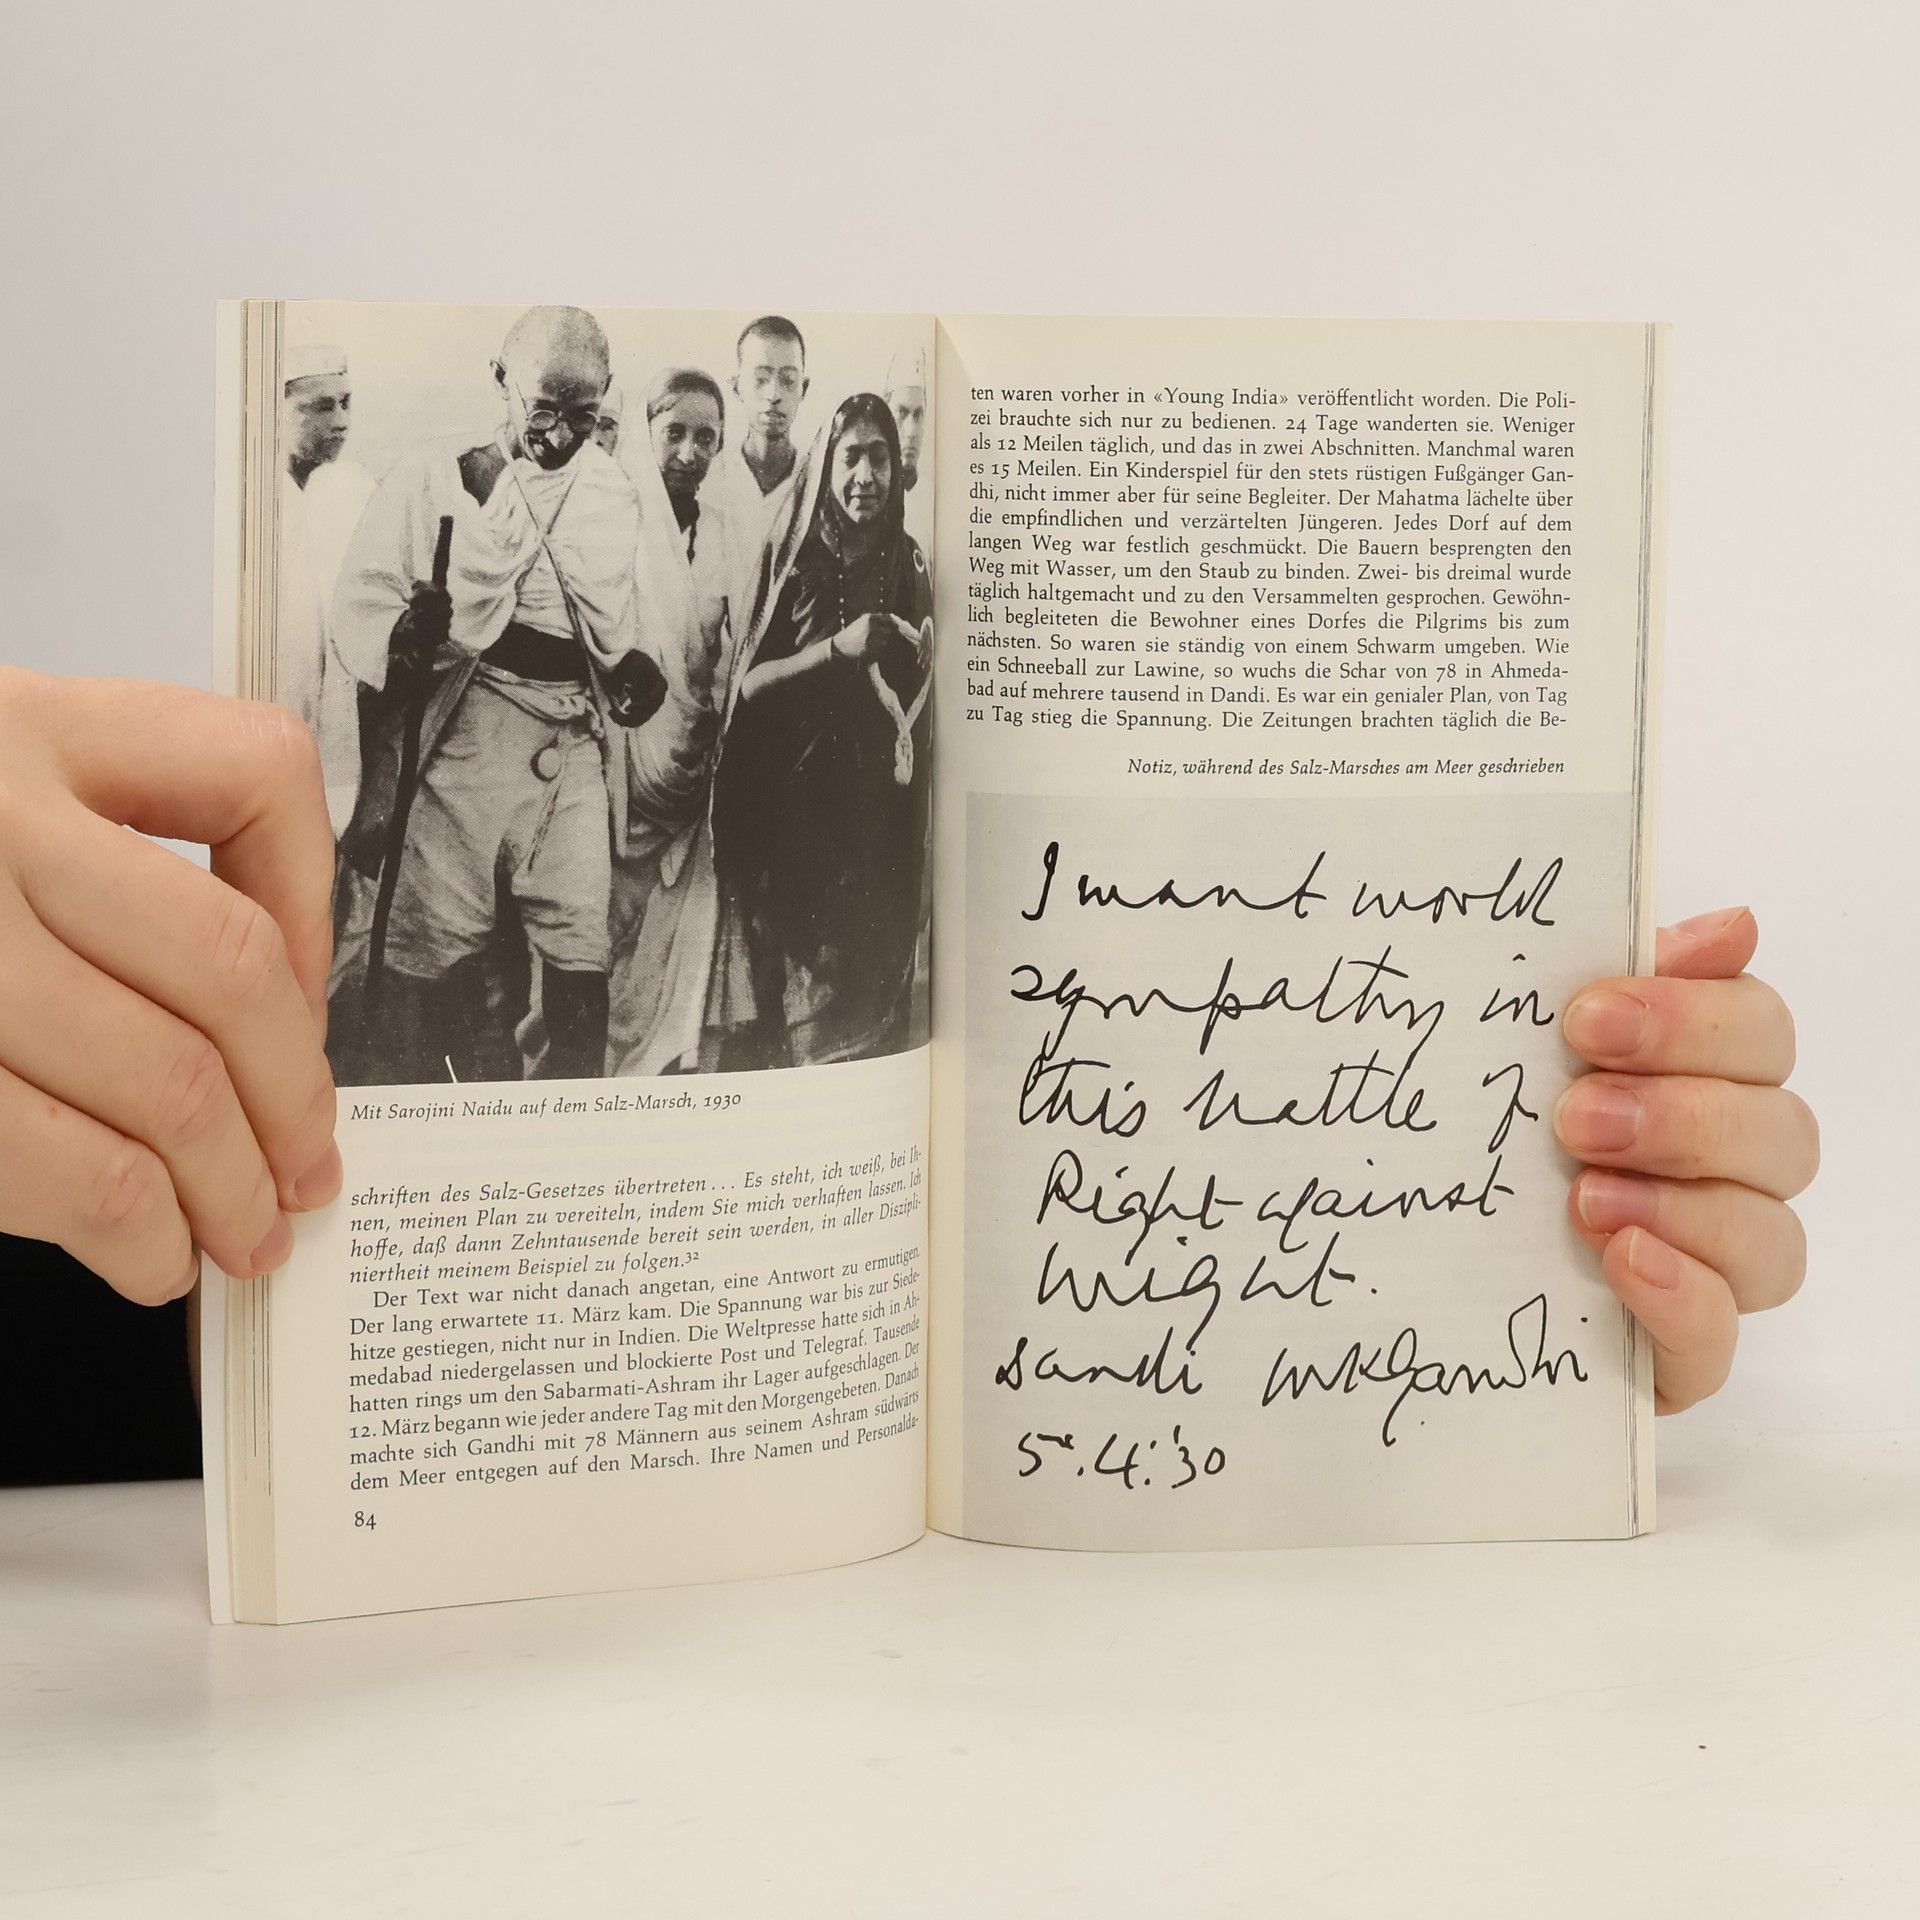 Mit Sarojini Naidu auf dem Salz-Marsch, 1930
schriften des Salz-Gesetzes übertreten... Es steht, ich weiß, bei Ih-
nen, meinen Plan zu vereiteln, indem Sie mich verhaften lassen. Ich
hoffe, daß dann Zehntausende bereit sein werden, in aller Diszipli-
niertheit meinem Beispiel zu folgen.³²
Der Text war nicht danach angetan, eine Antwort zu ermutigen.
Der lang erwartete 11. März kam. Die Spannung war bis zur Siede-
hitze gestiegen, nicht nur in Indien. Die Weltpresse hatte sich in Ah-
medabad niedergelassen und blockierte Post und Telegraf. Tausende
hatten rings um den Sabarmati-Ashram ihr Lager aufgeschlagen. Der
12. März begann wie jeder andere Tag mit den Morgengebeten. Danach
machte sich Gandhi mit 78 Männern aus seinem Ashram südwärts
dem Meer entgegen auf den Marsch. Ihre Namen und Personalda-
84
ten waren vorher in «Young India» veröffentlicht worden. Die Poli-
zei brauchte sich nur zu bedienen. 24 Tage wanderten sie. Weniger
als 12 Meilen täglich, und das in zwei Abschnitten. Manchmal waren
es 15 Meilen. Ein Kinderspiel für den stets rüstigen Fußgänger Gan-
dhi, nicht immer aber für seine Begleiter. Der Mahatma lächelte über
die empfindlichen und verzärtelten Jüngeren. Jedes Dorf auf dem
langen Weg war festlich geschmückt. Die Bauern besprengten den
Weg mit Wasser, um den Staub zu binden. Zwei- bis dreimal wurde
täglich haltgemacht und zu den Versammelten gesprochen. Gewöhn-
lich begleiteten die Bewohner eines Dorfes die Pilgrims bis zum
nächsten. So waren sie ständig von einem Schwarm umgeben. Wie
ein Schneeball zur Lawine, so wuchs die Schar von 78 in Ahmeda-
bad auf mehrere tausend in Dandi. Es war ein genialer Plan, von Tag
zu Tag stieg die Spannung. Die Zeitungen brachten täglich die Be-
Notiz, während des Salz-Marsches am Meer geschrieben
I want world
sympathy in
this battle of
Right against
might.
Dandi MKGandhi
5.4.'30